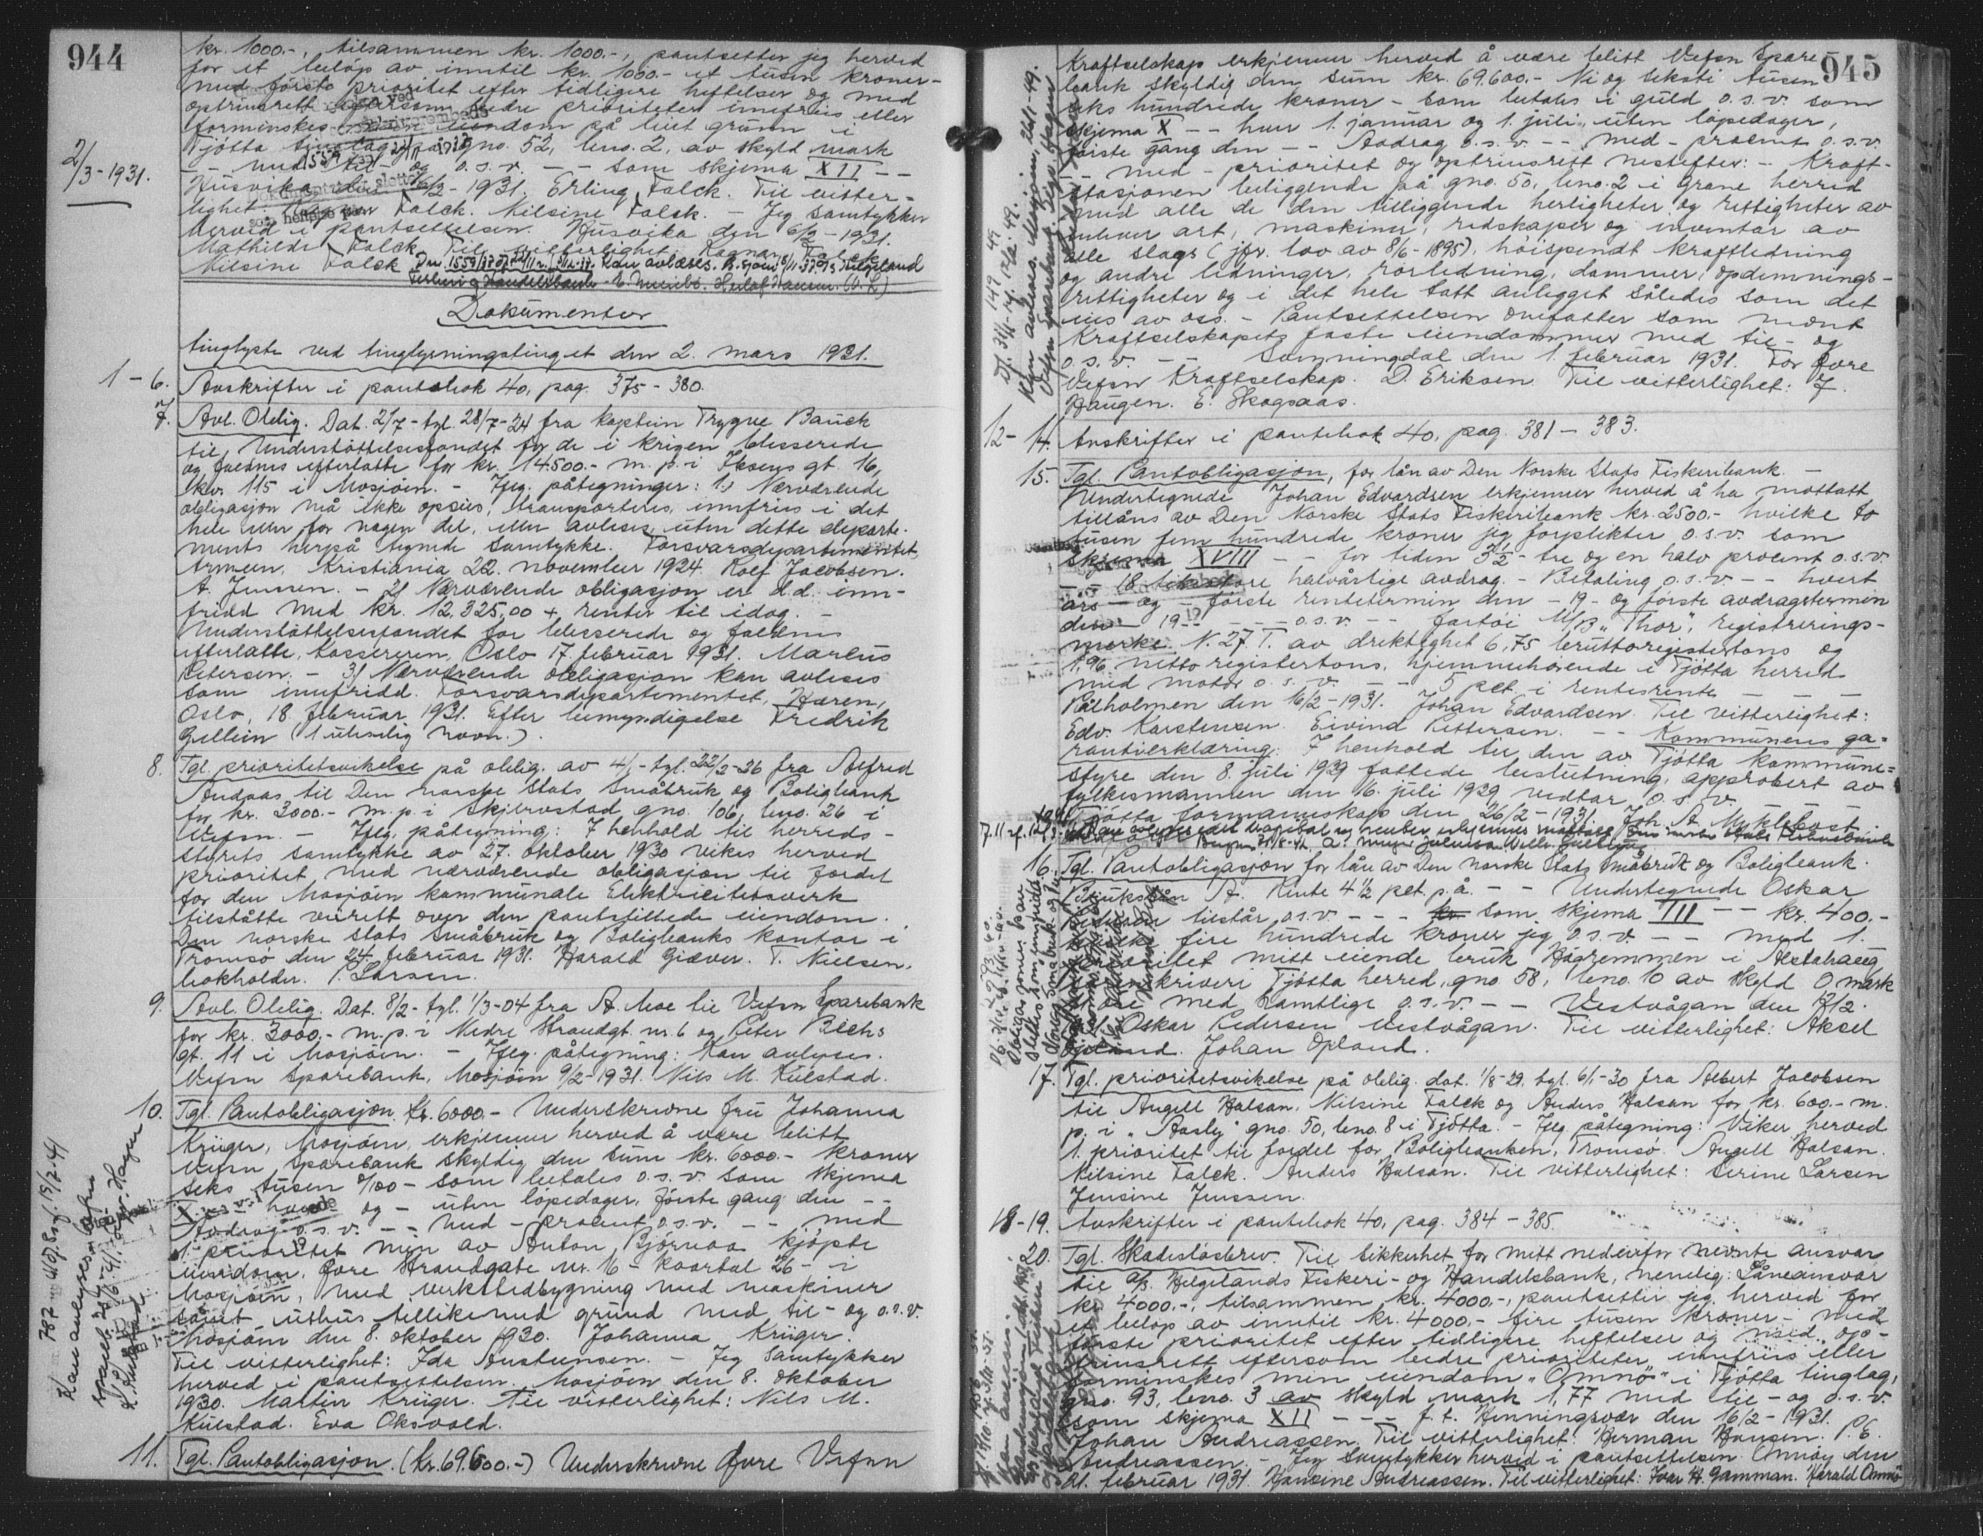 944
kr. 1000.-, tilsammen kr. 1000.-, pantsetter jeg herved
for et beløp av inntil kr. 1000.- et tusen kroner-
med første prioritet efter tidligere heftelser og med
optrinsrett eftersom bedre prioriteter innfries eller
forminskes min eiendom på leiet grunn i
Tjøtta tinglag, gno. 52, bno. 2, av skyld mark
2/3-1931.
- med til- og o.s.v. - - som skjema XII - -
Husvika den 16/2-1931. Erling Falck. Til vitter-
lighet: Ragnar Falck. Nilsine Falck. - Jeg samtykker
herved i pantsettelsen. Husvika den 6/2-1931.
Mathilde Falck. Til vitterlighet. Ragnar Falck
Nilsine Falck
Dokumenter
tinglyste ved tinglysningstinget den 2. mars 1931.
1-6. Avskrifter i pantebok 40, pag. 375-380.
7. Avl. Oblig. Dat. 2/7-tgl. 28/7-24 fra kaptein Trygve Bauck
til Understøttelsesfondet for de i krigen blesserede
og faldnes efterlatte for kr. 14.500.- m. p. i Iksens gt. 16,
kv. 115 i Mosjøen. - Iflg. påtegninger: 1) Nærværende
obligasjon må ikke opsies, transporteres, innfries i det
hele eller for nogen del, eller avleses uten dette departe-
ments herpå tegnede samtykke. Forsvarsdepartementet,
Armeen, Kristiania 22. november 1924. Rolf Jacobsen.
A. Jenssen. - 2) Nærværende obligasjon er d.d. inn-
fridd med kr. 12.325,00 + renter til idag. -
Understøttelsesfondet for blesserede og faldnes
efterlatte, kassereren, Oslo 17. februar 1931. Marius
Petersen. - 3) Nærværende obligasjon kan avleses
som innfridd. Forsvarsdepartementet, Hæren,
Oslo, 18. februar 1931. Efter bemyndigelse Fredrik
Gellein (1 utydelig navn.).
8. Tgl. prioritetsvikelse på oblig. av 4/1-tgl. 22/2-26 fra Alfred
Andaas til Den norske Stats Småbruk og Boligbank
for kr. 3000.- m. p. i Skjervstad gno. 106, bno. 26 i
Vefsn. - Iflg. påtegning: I henhold til herreds-
styrets samtykke av 27. oktober 1930 vikes herved
prioritet med nærværende obligasjon til fordel
for den Mosjøen kommunale Elektricitetsverk
tilståtte veirett over den pantstillede eiendom.
Den norske Stats Småbruk og Boligbanks kontor i
Tromsø den 24. februar 1931. Harald Giæver. T. Nielsen.
bokholder. P. Larsen.
9. Avl. Oblig. Dat. 8/2-tgl. 1/3-04 fra A. Moe til Vefsn Sparebank
for kr. 3000.- m. p. i Nedre Strandgt. nr. 6 og Peter Bechs
gt. 11 i Mosjøen. - Iflg. påtegning: Kan avlyses.
Vefsn Sparebank, Mosjøen 9/2-1931. Nils M. Kulstad.
10. Tgl. Pantobligasjon. Kr. 6000.- Underskrevne fru Johanna
Krüger, Mosjøen, erkjenner herved å være blitt
Vefsn Sparebank skyldig den sum kr. 6000.- kroner
seks tusen 0/100 - som betales o.s.v. som skjema
X - - hver - og - uten løpedager, første gang den - -
Avdrag o.s.v. - - med - procent o.s.v. - - med
1. prioritet min av Anton Bjørnaa kjøpte
eiendom, Øvre Strandgate nr. 16 - kvartal 26 - i
Mosjøen, med verkstedbygning med maskiner
samt uthus tillikemed grund med til- og o.s.v.
Mosjøen den 8. oktober 1930. Johanna Krüger.
Til vitterlighet: Ida Austensen. - Jeg samtykker
herved i pantsettelsen. Mosjøen den 8. oktober
1930. Martin Krüger. Til vitterlighet: Nils M.
Kulstad. Eva Oksvold.
11. Tgl. Pantobligasjon. (Kr. 69.600.-) Underskrevne Øvre Vefsn
945
Kraftselskap erkjenner herved å være blitt Vefsn Spare
bank skyldig den sum kr. 69.600.- Ni og seksti tusen
seks hundrede kroner - som betales i guld o.s.v. som
skjema X - - hver 1. januar og 1. juli, uten løpedager,
første gang den - - Avdrag o.s.v. - - med - procent o.s.v.
- - med - prioritet og optrinsrett nestefter: - Kraft-
stasjonen beliggende på gno. 50, bno. 2 i Grane herred
med alle de den tilliggende herligheter og rettigheter av
enhver art, maskiner, redskaper og inventar av
alle slags (jfr. lov av 8/6-1895), høispendt kraftledning
og andre ledninger, rørledning, dammer, opdemnings-
rettigheter og i det hele tatt anlegget således som det
eies av oss. - Pantsettelsen omfatter som nevnt
Kraftselskapets faste eiendommer med til- og
o.s.v. - - Svenningdal den 1. februar 1931. For Øvre
Vefsn Kraftselskap. D. Eriksen. Til vitterlighet: J.
Haugen. E. Skogsaas.
12-14. Avskrifter i pantebok 40, pag. 381-383.
15. Tgl. Pantobligasjon, for lån av Den Norske Stats Fiskeribank. -
Undertegnede Johan Edvardsen erkjenner herved å ha mottatt
tillåns av Den Norske Stats Fiskeribank kr. 2500.- hvilke to
tusen fem hundrede kroner jeg forplikter o.s.v. som
skjema XVIII - - for tiden 3½ - tre og en halv procent o.s.v.
- - 18 like store halvårlige avdrag. - Betaling o.s.v. - - hvert
års - og - første rentetermin den - 19- og første avdragstermin
den - 19- - - o.s.v. - - fartøi M/B „Thor", registrerings-
merke N. 27 T. av drektighet 6,75 bruttoregistertons og
1.96 nettoregistertons, hjemmehørende i Tjøtta herred
med motor o.s.v. - - 5 pct. i rentesrente - - -
Pålholmen den 16/2-1931. Johan Edvardsen. Til vitterlighet:
Edv. Karstensen. Eivind Pettersen. - - Kommunens ga-
rantierklæring: I henhold til den av Tjøtta kommune-
styre den 8. juli 1929 fattede beslutning, approbert av
fylkesmannen den 16. juli 1929 vedtar o.s.v.
Tjøtta formannskap den 26/2-1931. Joh. A. Myklebost.
16. Tgl. Pantobligasjon for lån av Den norske Stats Småbruk og Boligbank.
Brukslån A. Rente 4½ pct. p.å. - - Undertegnede Oskar
Pedersen tilstår o.s.v. - - - som skjema III - - kr. 400.-
fire hundrede kroner jeg o.s.v. - - med 1.
prioritet mitt eiende bruk Hågremmen i Alstahaug
sorenskriveri Tjøtta herred, gno. 58, bno. 10 av skyld 0 mark
med samtlige o.s.v. - - Vestvågan den 12/2.
Oskar Pedersen Vestvågan. Til vitterlighet: Aksel
Opland. Johan Opland.
17. Tgl. prioritetsvikelse på oblig. dat. 1/8-29. tgl. 6/1-30 fra Albert Jacobsen
til Angell Halsan, Nilsine Falck og Anders Halsan for kr. 600.- m.
p. i „Aasly" gno. 50, bno. 8 i Tjøtta. - Iflg. påtegning: Viker herved
1. prioritet til fordel for Boligbanken, Tromsø. Angell Halsan.
Nilsine Falck. Anders Halsan. Til vitterlighet: Serine Larsen
Jensine Jenssen.
18-19. Avskrifter i pantebok 40, pag. 384-385.
20. Tgl. Skadesløsbrev. Til sikkerhet for mitt nedenfor nevnte ansvar
til A/S. Helgelands Fiskeri- og Handelsbank, nemlig: Låneansvar
kr. 4000.-, tilsammen kr. 4000.-, pantsetter jeg herved for
et beløp av inntil kr. 4000.- fire tusen kroner - med
første prioritet efter tidligere heftelser og med op-
trinsrett eftersom bedre prioriteter innfries eller
forminskes min eiendom „Omnø" i Tjøtta tinglag,
gno. 93, bno. 3 av skyld mark 1,77 med til- og o.s.v.
som skjema XII - - - f. t. Henningsvær den 16/2-1931.
Johan Andreassen. Til vitterlighet: Herman Hansen. P. E.
Andreassen. - Jeg samtykker herved i pantsettelsen Omnøy den
21. februar 1931. Hansine Andreassen. Til vitterlighet: Ivar H. Gamman. Harald Omnø